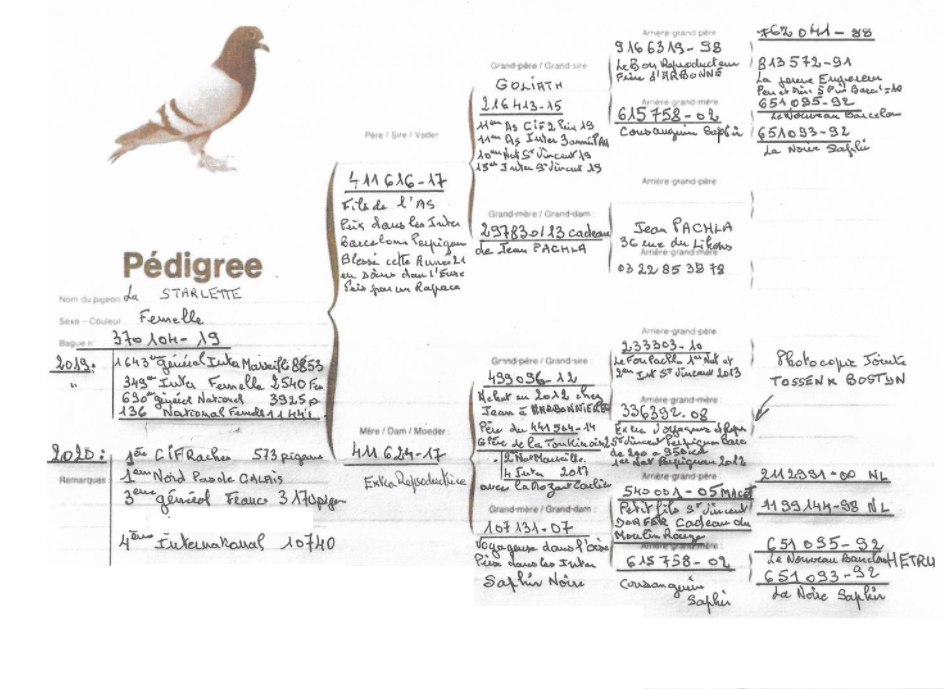 Pédigree
Nom du pigeon La STARLETTE
Sexe - Couleur Femelle
Bague n° 370 104 - 19
2019: 1643 général Inter Marseille 8853
" 349 Inter Femelle 2540
690 général National 3925 p
136 National Femelle
2020: 1ère CIF Racher 573 pigeons
Remarques 1ère Nord Pas de CALAIS
3ème général France
4ème International 10740
Père / Sire / Vader
411616-17
Fils de l'AS
Prix dans les Inter
Barcelone Perpignan
Blessé cette Année 21
Pris par un Rapace
Mère / Dam / Moeder:
411624-17
Extra Reproductrice
Grand-père / Grand-sire
GOLIATH
216413-15
11ème As CIF 2 Prix 19
11ème As Inter
10ème Nat St Vincent 19
15è Inter St Vincent 19
Grand-mère / Grand-dam:
297830/13 cadeau
de Jean PACHLA
Grand-père / Grand-sire:
499096-12
Achat en 2012 chez
Jean à
Père du 441504-14
de la
2 Nat Marseille
4 Inter 2017
avec la
Grand-mère / Grand-dam:
107131-07
Voyageuse dans l'
Prix dans les Inter
Saphir Noire
Arrière grand-père
916 6319-98
Le Bon Reproducteur
Frère d'ARBONNE
Arrière-grand-mère
615758-02
Consanguin Saphir
Arrière grand-père
Jean PACHLA
36 rue du
Arrière-grand-mère
03 22 85 39 78
Arrière-grand-père
233303-10
Le Fou Pachla 1er Nat et
2ème Int St Vincent 2013
Arrière-grand-mère:
336392-08
Extra Voyageur
St Vincent Perpignan Barc
1er Nat Perpignan 2012
Arrière grand-père
540001-05
Petit fils St Vincent
Cadeau du
Moulin Rouge
Arrière-grand-mère
615758-02
Consanguin
Saphir
762041-88
813572-91
La jeune Empereur
651095-92
Le Nouveau Barcelone
651093-92
La Noire Saphir
Photocopie Jointe
TOSSENK BOSTYN
2112991-00 NL
1199144-98 NL
651095-92
Le Nouveau Barcelone HETRU
651093-92
La Noire Saphir